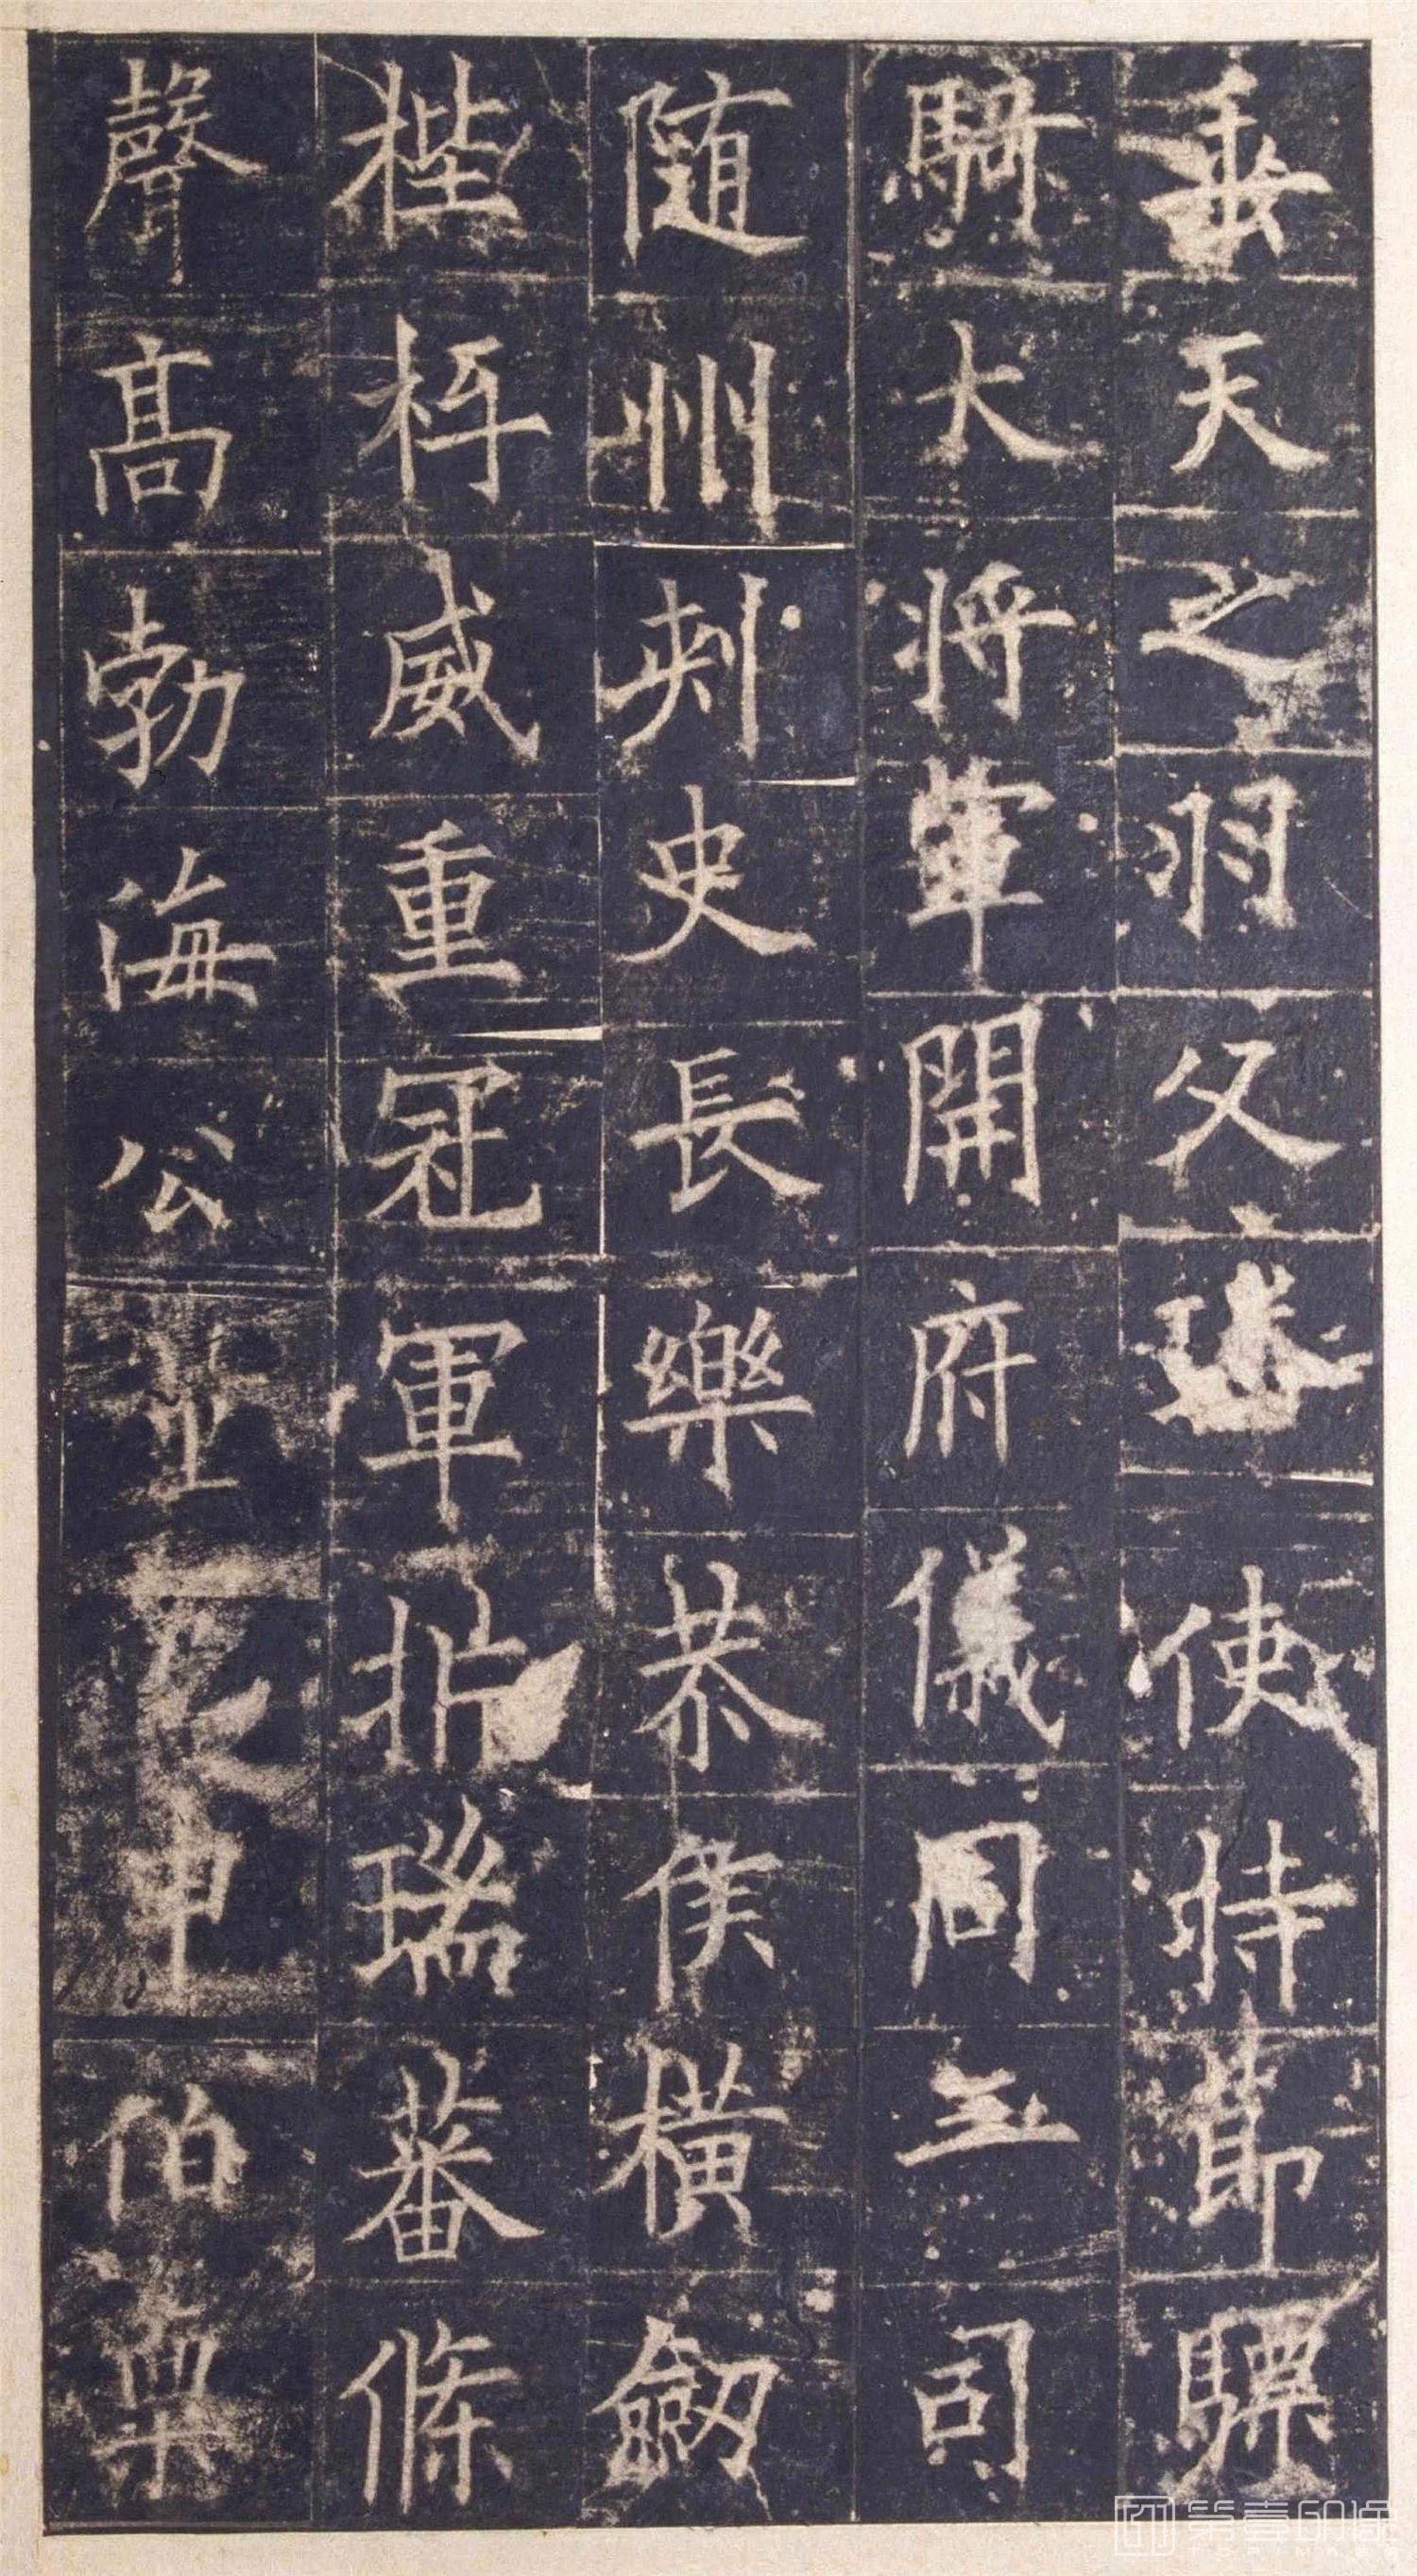 垂天之羽父璠使持節驃
騎大將軍開府儀同三司
随州刺史長樂恭侯橫劒
梐枑威重冠軍析瑞蕃條
聲高勃海公 伯